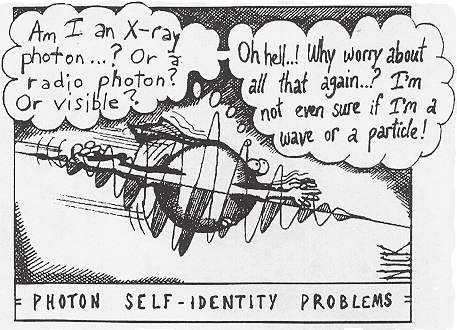 Am I an X-ray
photon...? Or a
radio photon?
Or visible?
Oh hell..! Why worry about
all that again...? I'm
not even sure if I'm a
wave or a particle!
NICK
= PHOTON SELF-IDENTITY PROBLEMS =